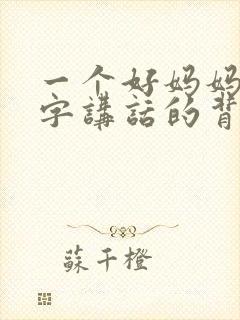 一个好妈妈
字講話的背
蘇千橙